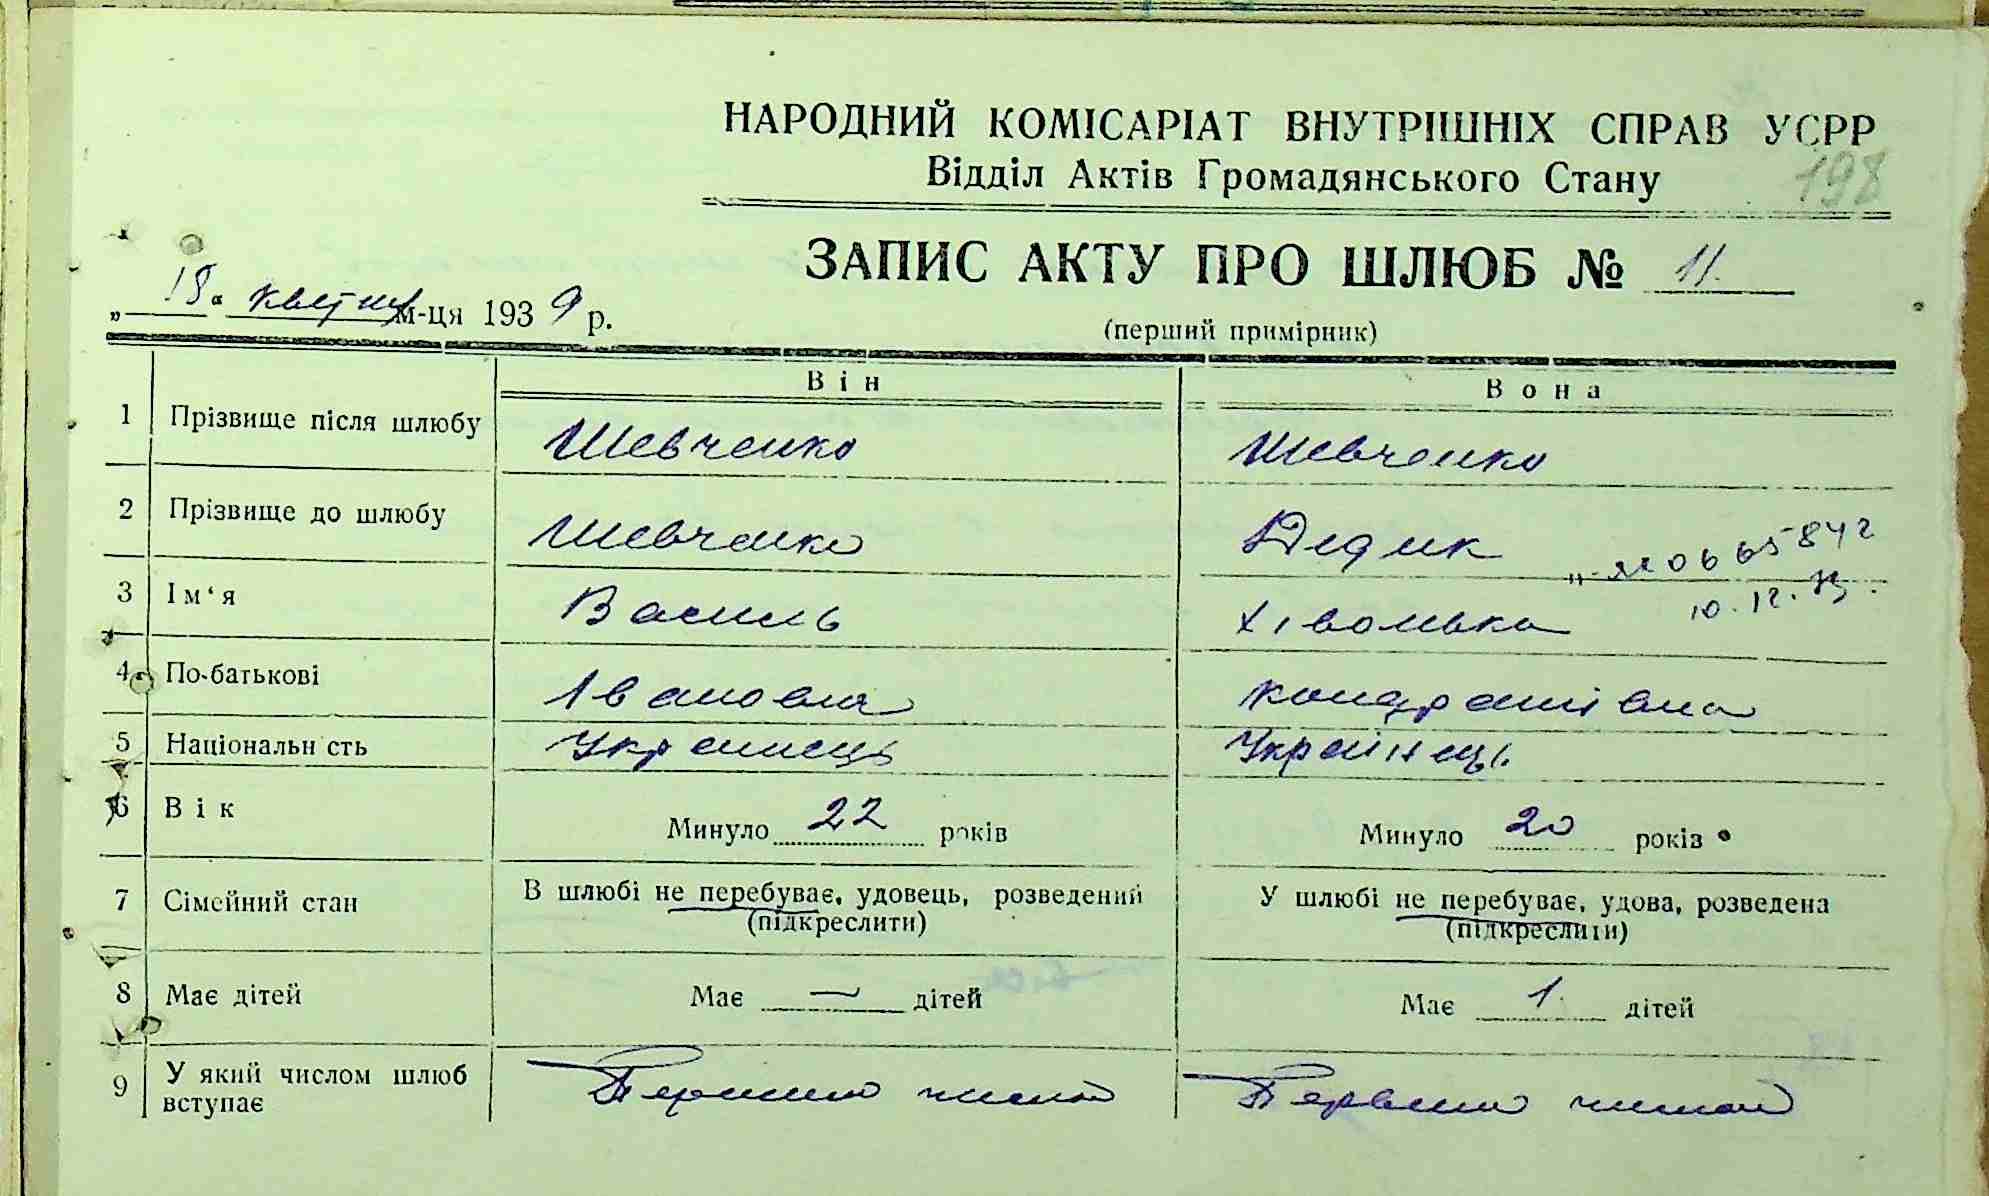 НАРОДНИЙ КОМІСАРІАТ ВНУТРІШНІХ СПРАВ УСРР
Відділ Актів Громадянського Стану
198
ЗАПИС АКТУ ПРО ШЛЮБ № 11.
„18“ квітня м-ця 1939 р.
(перший примірник)
Він Вона
1 Прізвище після шлюбу Шевченко Шевченко
2 Прізвище до шлюбу Шевченко Дидик
10.12.
3 Ім‘я Василь Хівомька
4 По-батькові Іванович Кондратівна
5 Національн сть Українець Українець
6 Вік Минуло 22 років Минуло 20 років
7 Сімейний стан В шлюбі не перебуває, удовець, розведений У шлюбі не перебуває, удова, розведена
(підкреслити) (підкреслити)
8 Має дітей Має — дітей Має 1. дітей
9 У який числом шлюб вступає Першим числом Первим числом